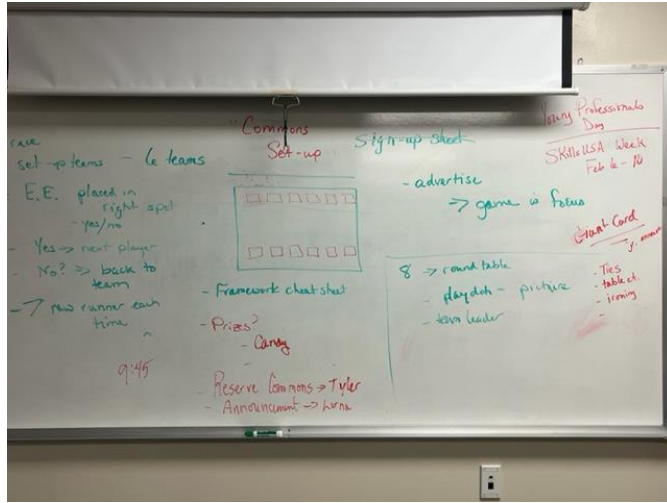 race
set-up teams - 6 teams
E.E. placed in
right spot
- yes/no
- Yes => next player
- No? => back to
team
- new runner each
time
9:45
"Commons
Set-up
- Framework cheat sheet
- Prizes?
- Candy
- Reserve Commons -> Tyler
- Announcement -> Lorna
Sign-up sheet
- advertise
=> game is focus
8 -> round table
- playdoh - picture
- team leader
Young Professionals
Day
SkillsUSA Week
Feb 6-
Card
- Ties
- table
- ironing
-